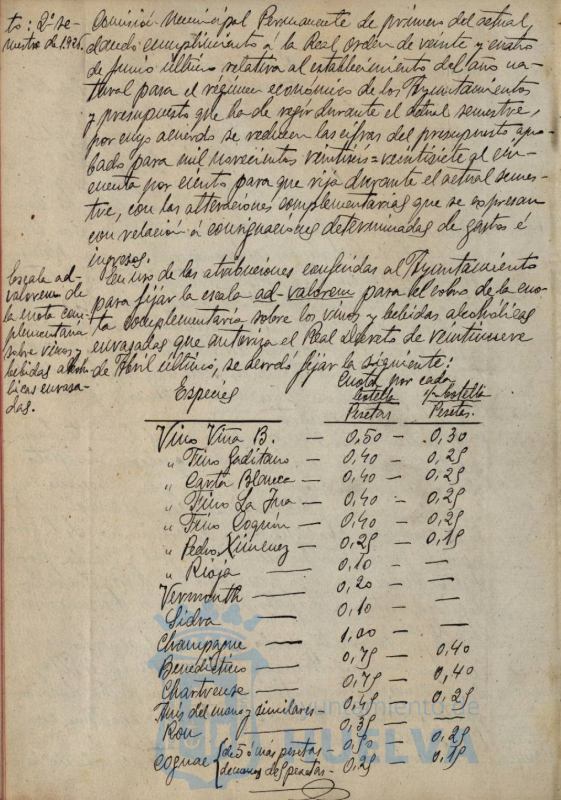 to: 2º se-
mestre de 1926.
Comisión Municipal Permanente de primero del actual,
dando cumplimiento á la Real orden de veinte y cuatro
de Junio último relativa al establecimiento del año na-
tural para el régimen económico de los Ayuntamientos
y presupuesto que ha de regir durante el actual semestre,
por cuyo acuerdo se reducen las cifras del presupuesto apro-
bado para mil novecientos veintiseis=veintisiete al cin-
cuenta por ciento para que rija durante el actual semes-
tre, con las alteraciones complementarias que se expresan
con relación á consignaciones determinadas de gastos é
ingresos.
Escala ad-
valorem de
la cuota com-
plementaria
sobre vinos y
bebidas alcohó-
licas envasa-
das.
En uso de las atribuciones conferidas al Ayuntamiento
para fijar la escala ad-valorem para el cobro de la cuo-
ta complementaria sobre los vinos y bebidas alcohólicas
envasadas que autoriza el Real Decreto de veintinueve
de Abril último, se acordó fijar la siguiente:
Cuota por cada
Especies botella ½ botella
Pesetas Pesetas.
Vino Viña B. — 0,50 — 0,30
" Fino Gaditano — 0,40 — 0,25
" Carta Blanca — 0,40 — 0,25
" Fino La Ina — 0,40 — 0,25
" Fino Coquin — 0,40 — 0,25
" Pedro Ximenez — 0,25 — 0,15
" Rioja — 0,10 — —
Vermouth — 0,20 — —
Sidra — 0,10 — —
Champagne — 1,00 — —
Benedictino — 0,75 — 0,40
Chartreuse — 0,75 — 0,40
Anís del mono y similares — 0,45 — 0,25
Ron — 0,35 — —
Cognac { de 5 ó más pesetas — 0,50 — 0,25
de menos de 5 pesetas — 0,25 — 0,15
Ayuntamiento de
HUELVA